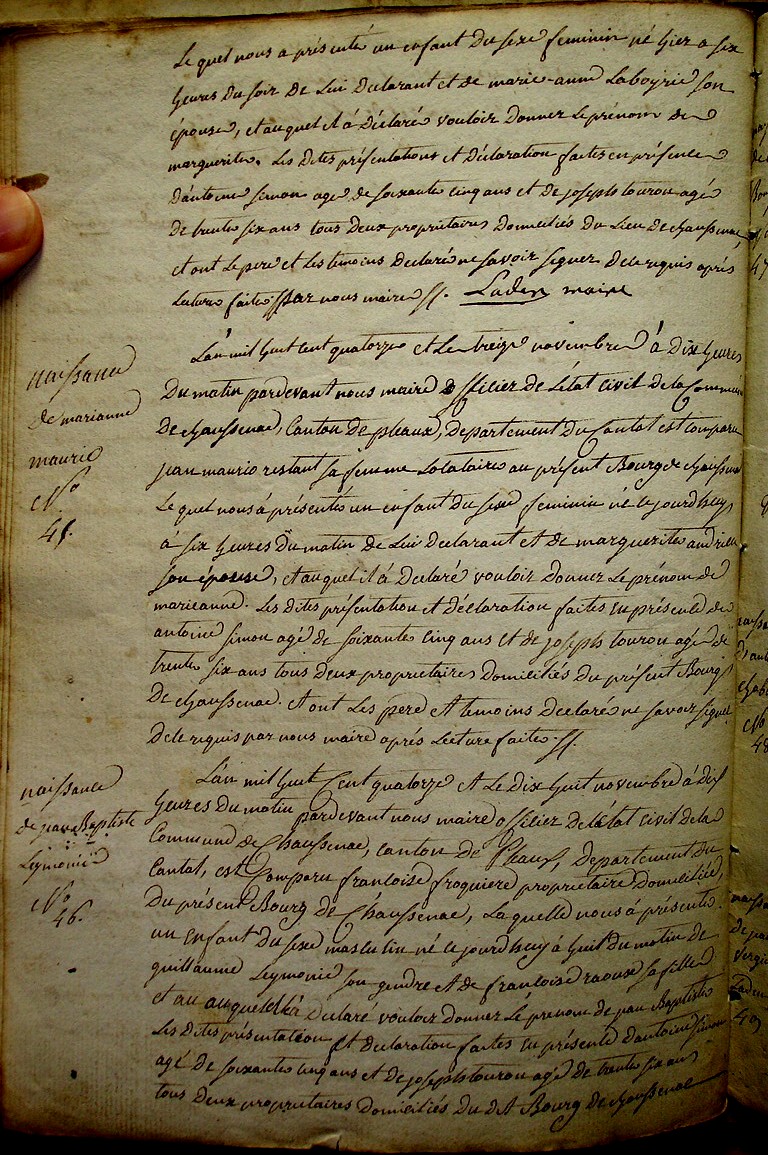 Le quel nous a présenté un enfant du sexe feminin né hier a six
heures du soir de Lui declarant et de marie-anne Laboyrie son
épouse, et auquel il á déclaré vouloir donner Le prénom de
marguerite. Les dites présentations et déclaration faites en présence
d'antoine simon agé de soixante cinq ans et de joseph touron agé
de trente six ans tous deux propriétaires domiciliés du Lieu de chaussenac
et ont Le pere et Les temoins declaré ne savoir signer de le requis aprés
Lecture faite par nous maire //. Laden maire
naissance
de marianne
maurio
No
45.
L'an mil huit cent quatorze et Le treize novembre á dix heures
du matin pardevant nous maire officier de L'état civil de la Commune
de chaussenac, Canton de pleaux, departement du Cantal est comparu
jean maurio restant sa femme Locataire au présent Bourg de chaussenac
Le quel nous á présentés un enfant du sexe feminin né ce jourd'huy
á six heures du matin de Lui declarant et de marguerite andrieu
son épouse, et auquel il á declaré vouloir donner Le prénom de
marieanne. Les dites présentation et déclaration faites en présence de
antoine simon agé de soixante cinq ans et de joseph touron agé de
trente six ans tous deux proprietaires domiciliés du présent Bourg
de chaussenac. et ont Les pere et temoins declaré ne savoir signer
de le requis par nous maire aprés Lecture faite. //.
naissance
de jean Baptiste
Leymonie
No
46.
L'an mil huit Cent quatorze et Le dix huit novembre á dix
heures du matin pardevant nous maire officier de L'état civil de la
Commune de Chaussenac, canton de Pleaux, departement du
Cantal, est Comparu francoise froquiere propriétaire domiciliée,
du présent Bourg de Chaussenac, La quelle nous á présenté
un enfant du sexe masculin né ce jourd'huy á huit du matin de
guillaume Leymonie son gendre et de francoise raoux sa fille
et au auquel elle á declaré vouloir donner Le prenom de jean Baptiste
Les dites présentation et declaration faites en présence d'antoine simon
agé de soixante cinq ans et de joseph touron agé de trente six ans
tous deux proprietaires domiciliés du dit Bourg de chaussenac